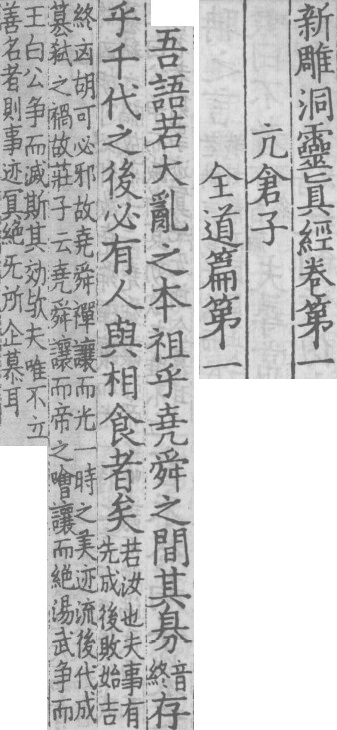 新雕洞靈真經卷第一
亢倉子
全道篇第一
吾語若大亂之本祖乎堯舜之間其音終存
乎千代之後必有人與相食者矣
若汝也夫事有
先成後敗始吉
終凶胡可必邪故堯舜禪讓而光一時之美迹流後代成
篡弒之禍故莊子云堯舜讓而帝之噲讓而絕湯武爭而
王白公爭而滅斯其効欤夫唯不立
善名者則事迹具絕无所企慕耳